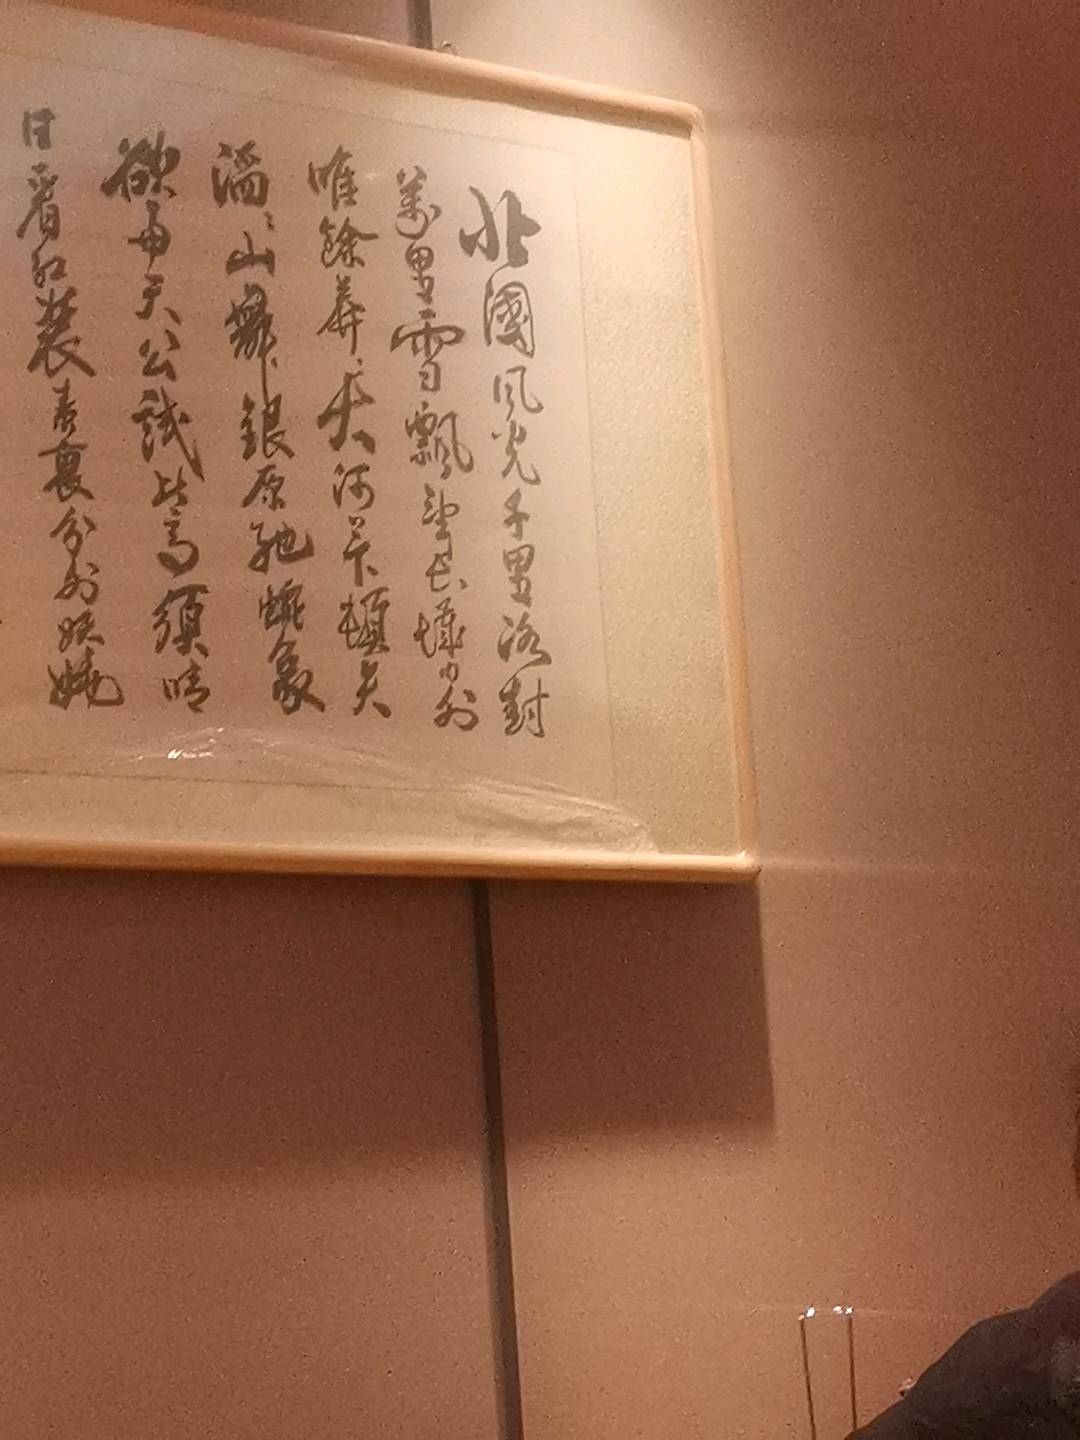 北國風光千里冰封
萬里雪飄望長城内外
唯餘莽〻大河上下頓失
滔〻山舞銀原馳蠟象
欲与天公試比高須晴
日看紅裝素裹分外妖嬈